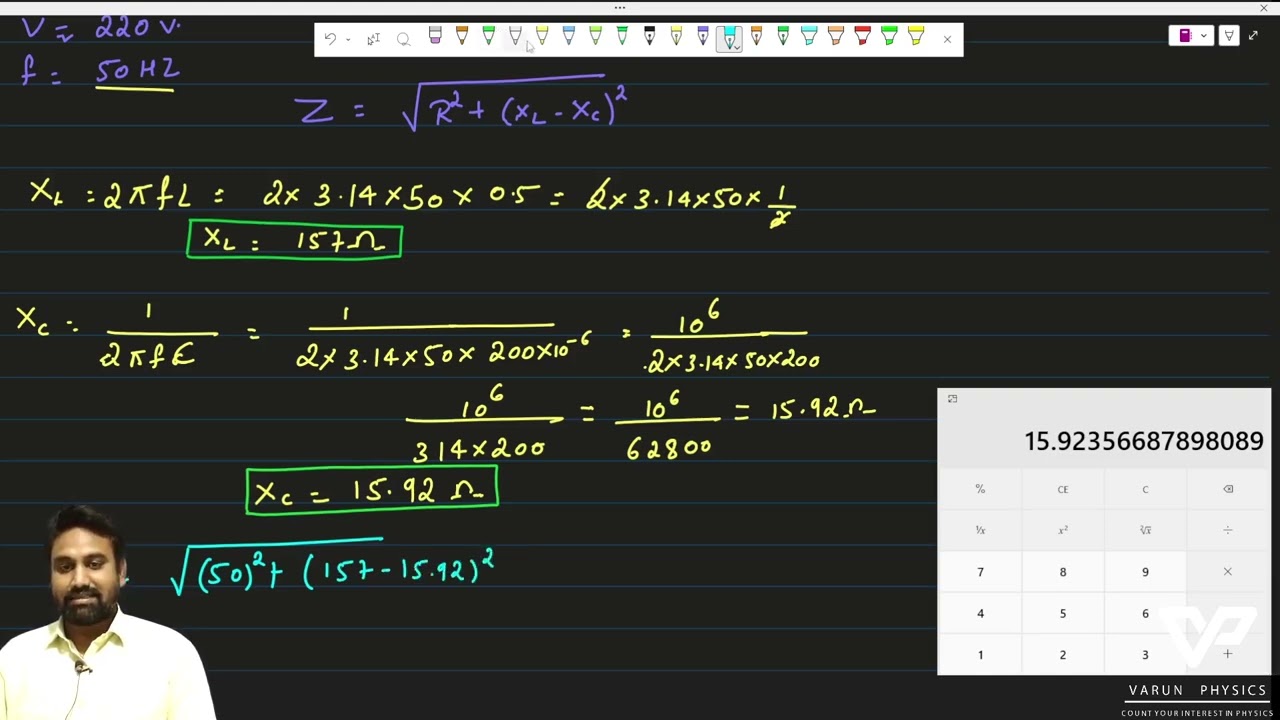 V = 220 V.
f = 50 HZ
Z = √R² + (X_L - X_C)²
X_L = 2πfL = 2 × 3.14 × 50 × 0.5 = 2 × 3.14 × 50 × 1/2
X_L = 157 Ω
X_C = 1/2πfC = 1/2 × 3.14 × 50 × 200 × 10⁻⁶ = 10⁶/.2 × 3.14 × 50 × 200
10⁶/314 × 200 = 10⁶/62800 = 15.92 Ω
X_C = 15.92 Ω
√(50)² + (157 - 15.92)²
15.92356687898089
% CE C
¹/x x² ²√x ÷
7 8 9 ×
4 5 6
1 2 3 +
VARUN PHYSICS
COUNT YOUR INTEREST IN PHYSICS